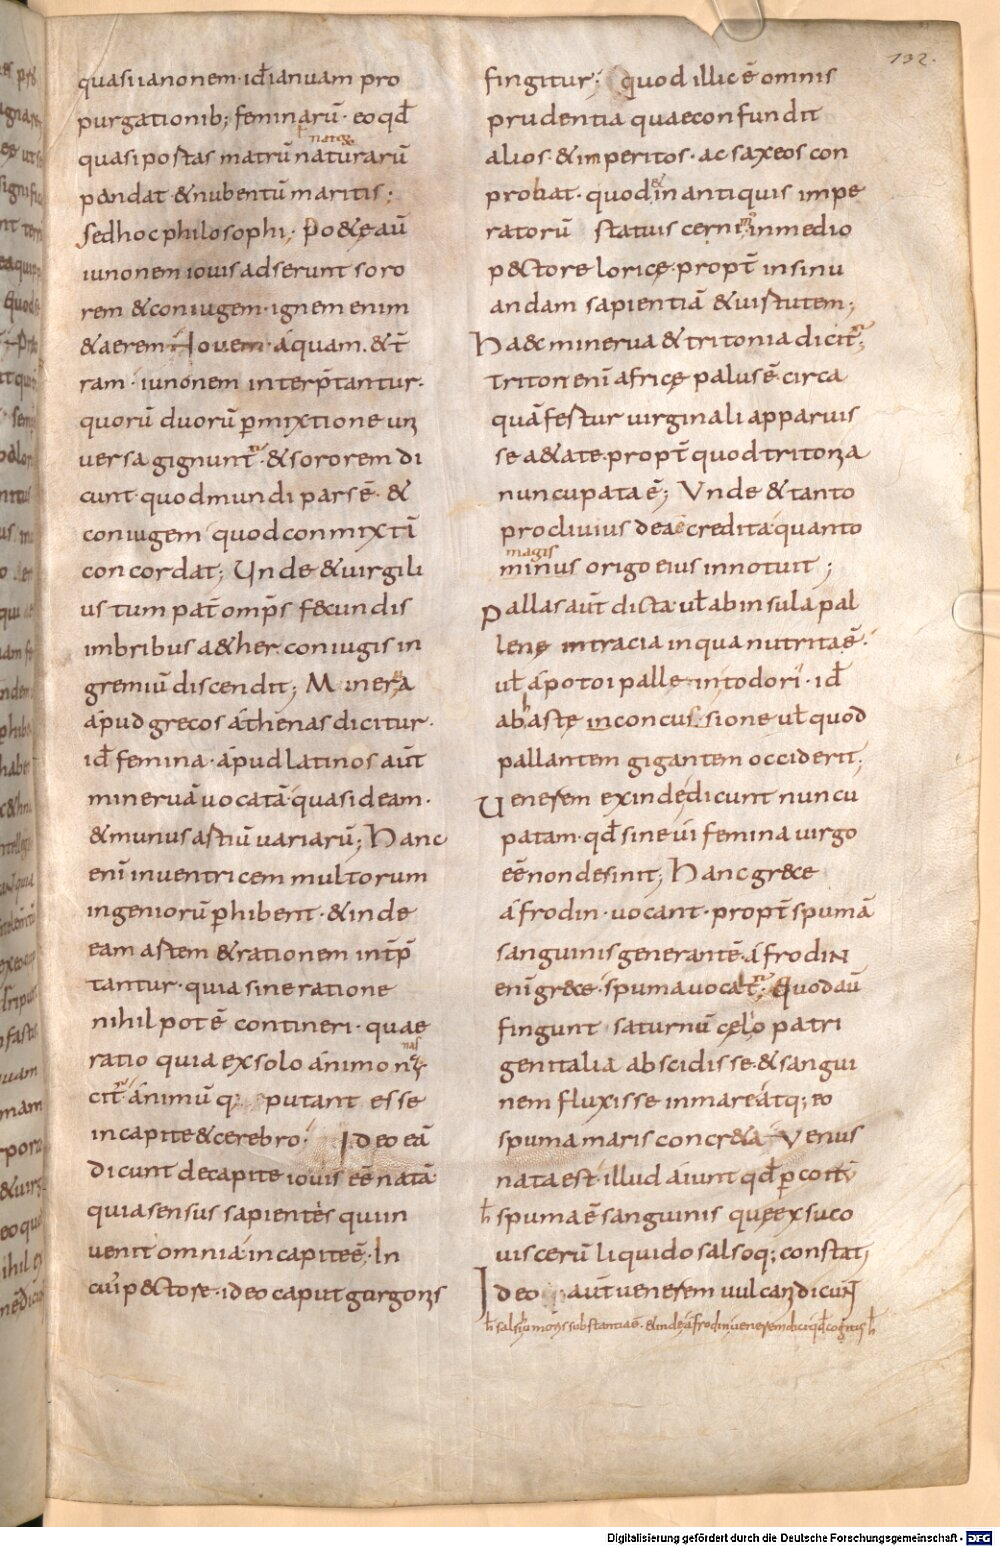 quasi ianonem · id ianuam pro
purgationib; feminarū · eo qđ
natoȝ
quasi portas matrū naturarū
pandat · & nubentū maritis ·
Sed hoc philosophi · Po&ę aū
iunonem iouis adserunt soro
rem & coniugem · ignem enim
& aerem Iouem · aquam · & t̄
ram · iunonem interp̄tantur ·
quorū duorū ꝑmixtione un
uersa gignunt̄ · & sororem di
cunt · quod mundi pars ē · &
coniugem quod conmixti
concordat; Unde & uirgili
us tum pat̄ omp̄s fecundis
imbribus a&her · coniugis in
gremiū discendit; Minerua
apud grecos athenas dicitur ·
id femina · apud latinos aūt
mineruā uocatā quasi deam ·
& munus artiū uariarū; Hanc
enī inuentricem multorum
ingeniorū ꝑhibent · & inde
eam artem & rationem int̄p̄
tantur · quia sine ratione
nihil pot ē contineri · quae
ratio quia ex solo animo nas
cit̄ animū q putant esse
in capite & cerebro · Ideo eā
dicunt de capite iouis eē natā
quia sensus sapientes qui in
uenit omnia in capite ē · In
cui' pectore · ideo caput gurgonis
132.
fingitur; Quod illic ē omnis
prudentia quae confundit
alios · & imperitos · ac saxeos con
probat · quod & in antiquis impe
ratorū statuis cernim' in medio
pectore loricę · propt̄ insinu
andam sapientiā & uirtutem;
Haec minerua & tritonia dicit̄;
triton enī africę palus ē · circa
quā fertur uirginali apparuis
se aetate · propt̄ quod tritonia
nuncupata ē; Unde & tanto
procliuius dea credita quanto
magis
minus origo eius innotuit;
Pallas aūt dicta uł ab insula pal
lenę in tracia in qua nutrita ē ·
uł apo toi pallein todori · iđ
ab hastę inconcussione uł quod
pallantem gigantem occiderit;
Uenerem exinde dicunt nuncu
patam · qđ sine ui femina uirgo
eē non desinit; Hanc grece
afrodin · uocant · propt̄ spumā
sanguinis generantē · afrodin
enī grece · spuma uocat̄ · Quod aū
fingunt saturnū celo patri
genitalia abscidisse · & sangui
nem fluxisse in mare atq; eo
spuma maris concreta Venus
nata est illud aiunt qđ ꝑ coitū
h spuma ē sanguinis quę ex suco
uiscerū liquido salsoq; constat;
Ideo aūt uenerem uulcani dicunt